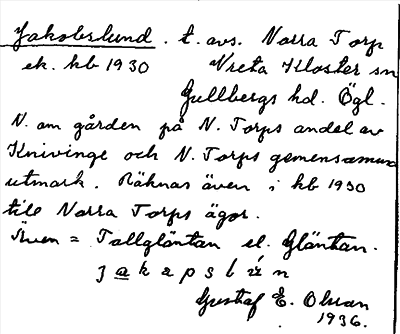 Jakobslund. t. avs. Norra Torp
ek. kb 1930 Vreta Kloster sn
Gullbergs hd. Ögl.
N. om gården på N. Torps andel av
Knivinge och N. Torps gemensamma
utmark. Räknas även i kb 1930
till Norra Torps ägor.
Även = Tallgläntan el. Gläntan.
Gustaf E. Olsson
1936.